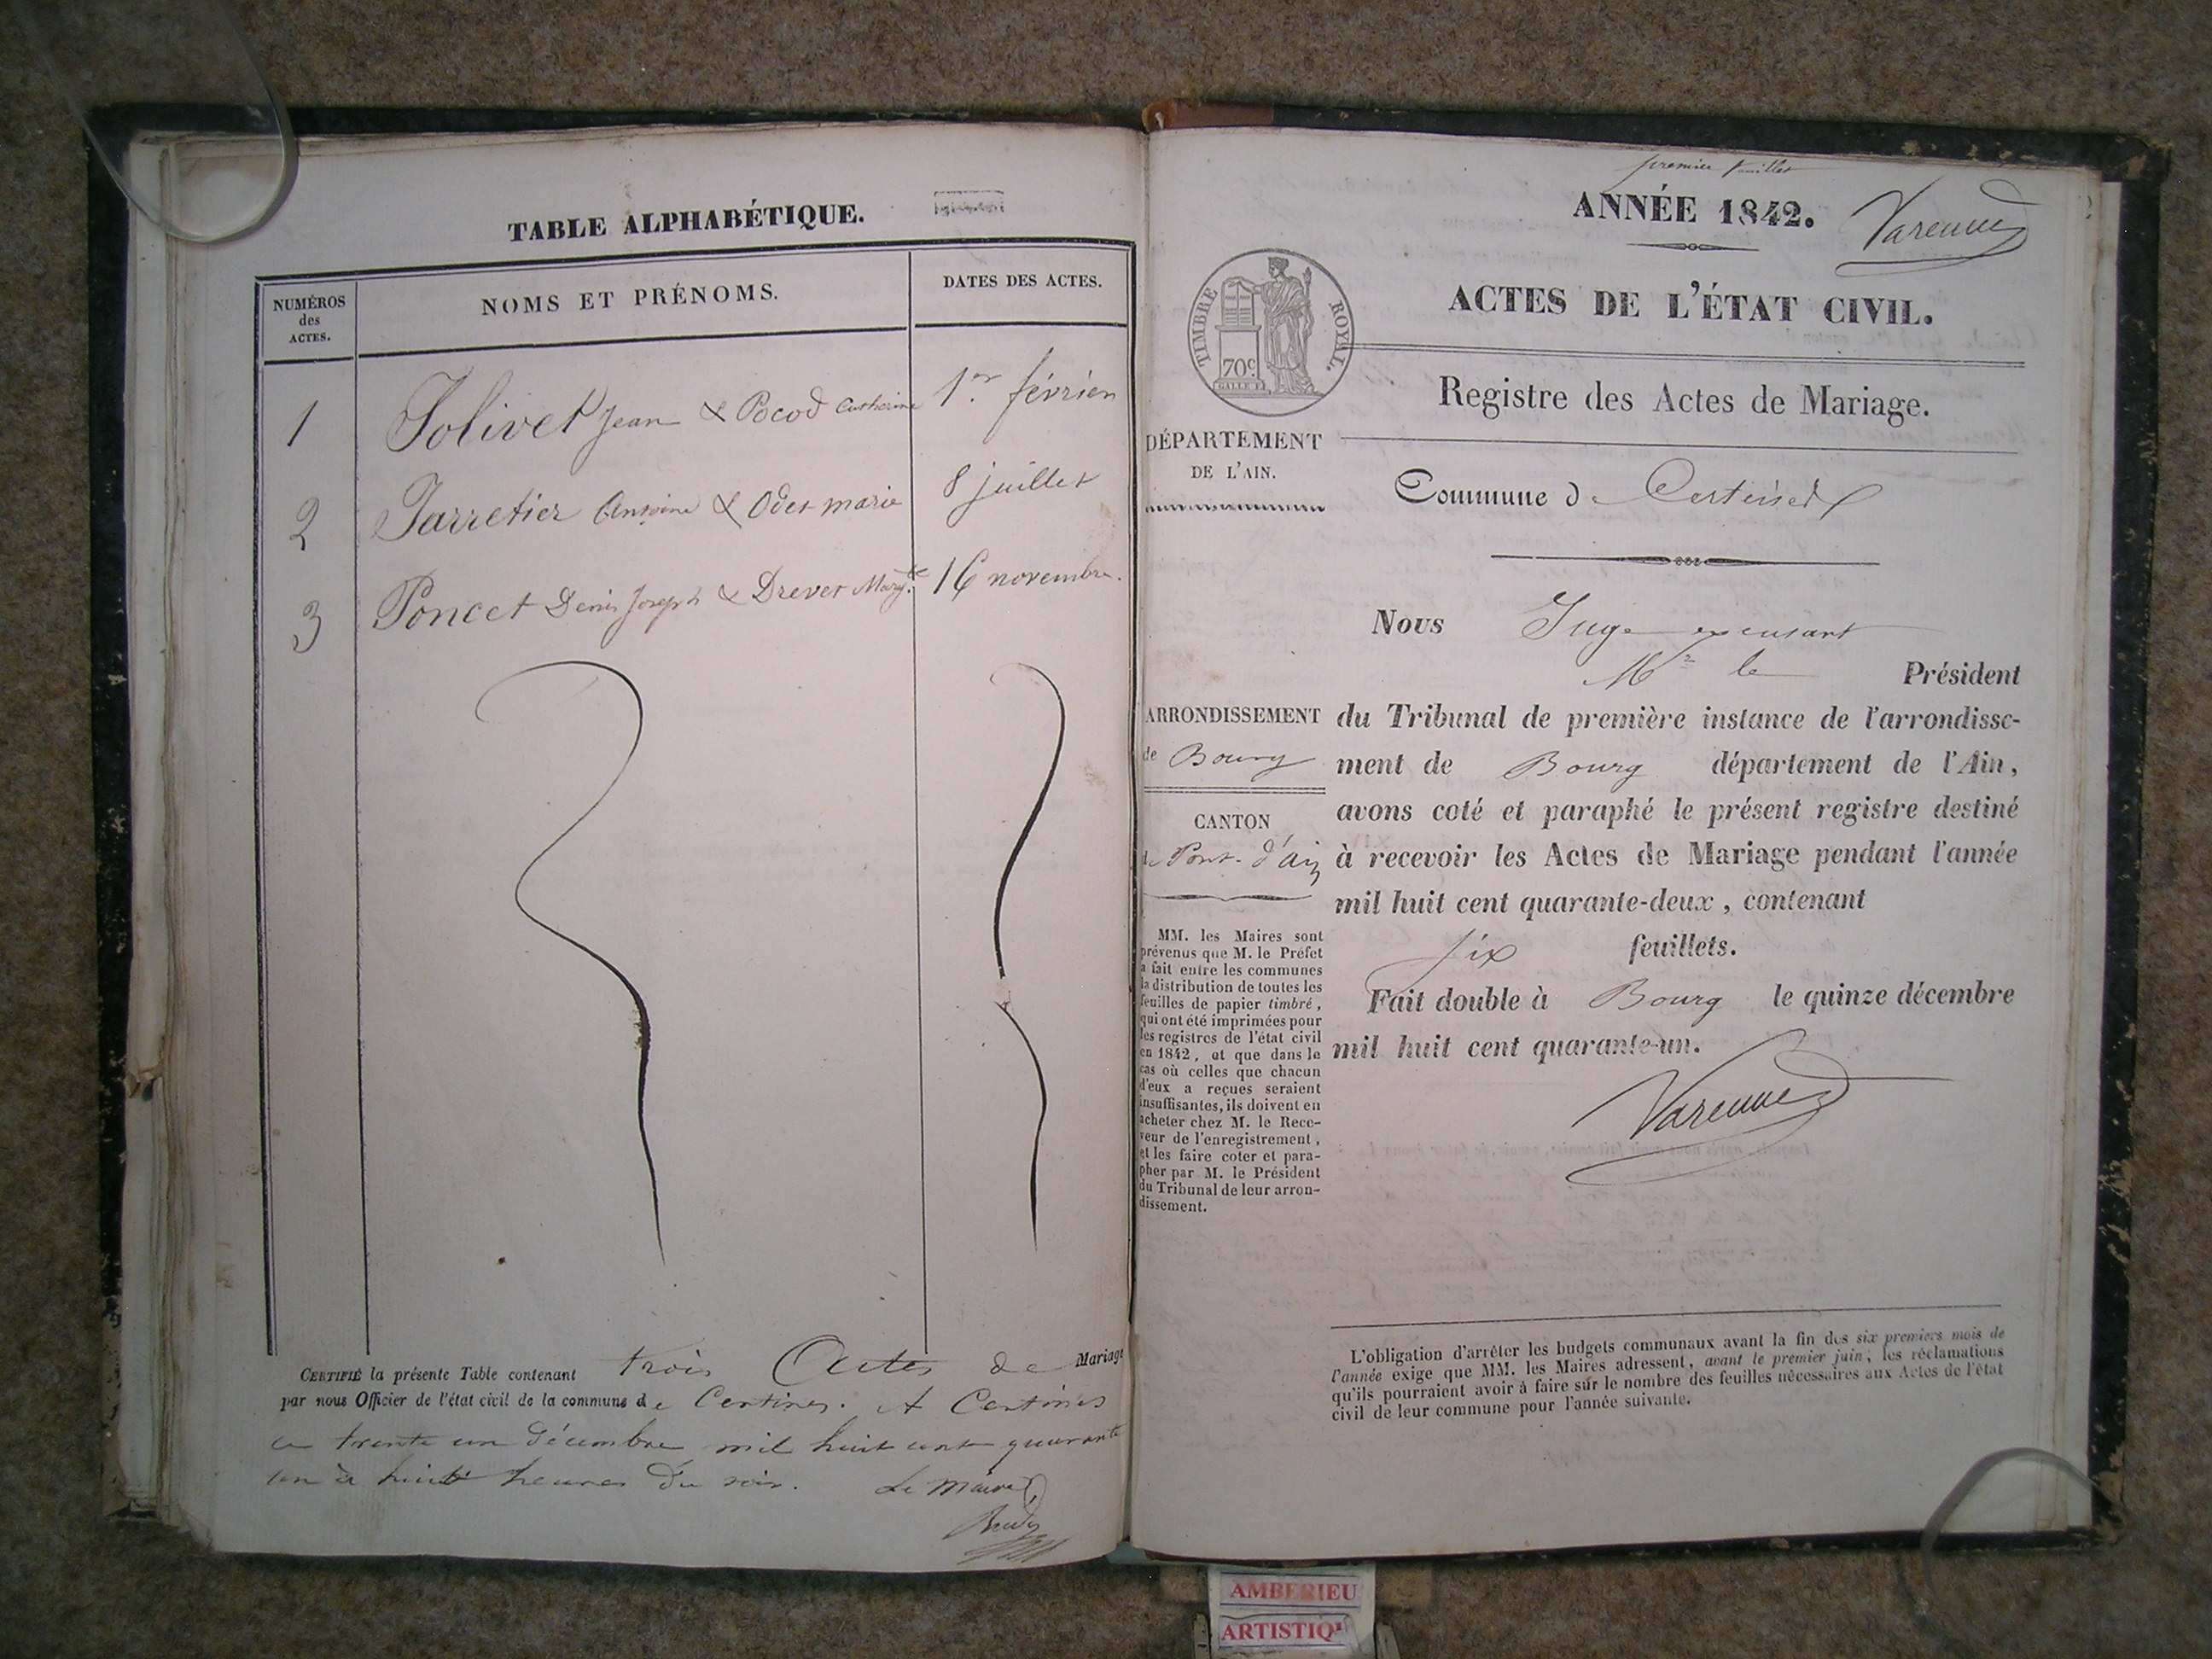 TABLE ALPHABÉTIQUE.
NUMÉROS des ACTES.
NOMS ET PRÉNOMS.
DATES DES ACTES.
1 Jolivet Jean & Pocod Catherine 1.er février
2 Jarretier Antoine & Odet marie 8 juillet
3 Poncet Denis Joseph & Drevet Marg.te 16 novembre.
CERTIFIÉ la présente Table contenant trois Actes de Mariage
par nous Officier de l'état civil de la commune de Certines. A Certines
ce trente un décembre mil huit cent quarante
un à huit heures du soir. Le Maire
premier feuillet
ANNÉE 1842.
Varenne
ACTES DE L'ÉTAT CIVIL.
TIMBRE ROYAL.
70c
Registre des Actes de Mariage.
DÉPARTEMENT
DE L'AIN.
Commune de Certines
Nous Juge excusant
Mr le Président
du Tribunal de première instance de l'arrondisse-
ment de Bourg département de l'Ain,
avons coté et paraphé le présent registre destiné
à recevoir les Actes de Mariage pendant l'année
mil huit cent quarante-deux, contenant
six feuillets.
Fait double à Bourg le quinze décembre
mil huit cent quarante-un.
Varenne
ARRONDISSEMENT
de Bourg
CANTON
de Pont-d'ain
MM. les Maires sont
prévenus que M. le Préfet
a fait entre les communes
la distribution de toutes les
feuilles de papier timbré,
qui ont été imprimées pour
les registres de l'état civil
en 1842, et que dans le
cas où celles que chacun
d'eux a reçues seraient
insuffisantes, ils doivent en
acheter chez M. le Rece-
veur de l'enregistrement,
et les faire coter et para-
pher par M. le Président
du Tribunal de leur arron-
dissement.
L'obligation d'arrêter les budgets communaux avant la fin des six premiers mois de
l'année exige que MM. les Maires adressent, avant le premier juin, les réclamations
qu'ils pourraient avoir à faire sur le nombre des feuilles nécessaires aux Actes de l'état
civil de leur commune pour l'année suivante.
AMBERIEU
ARTISTIQ